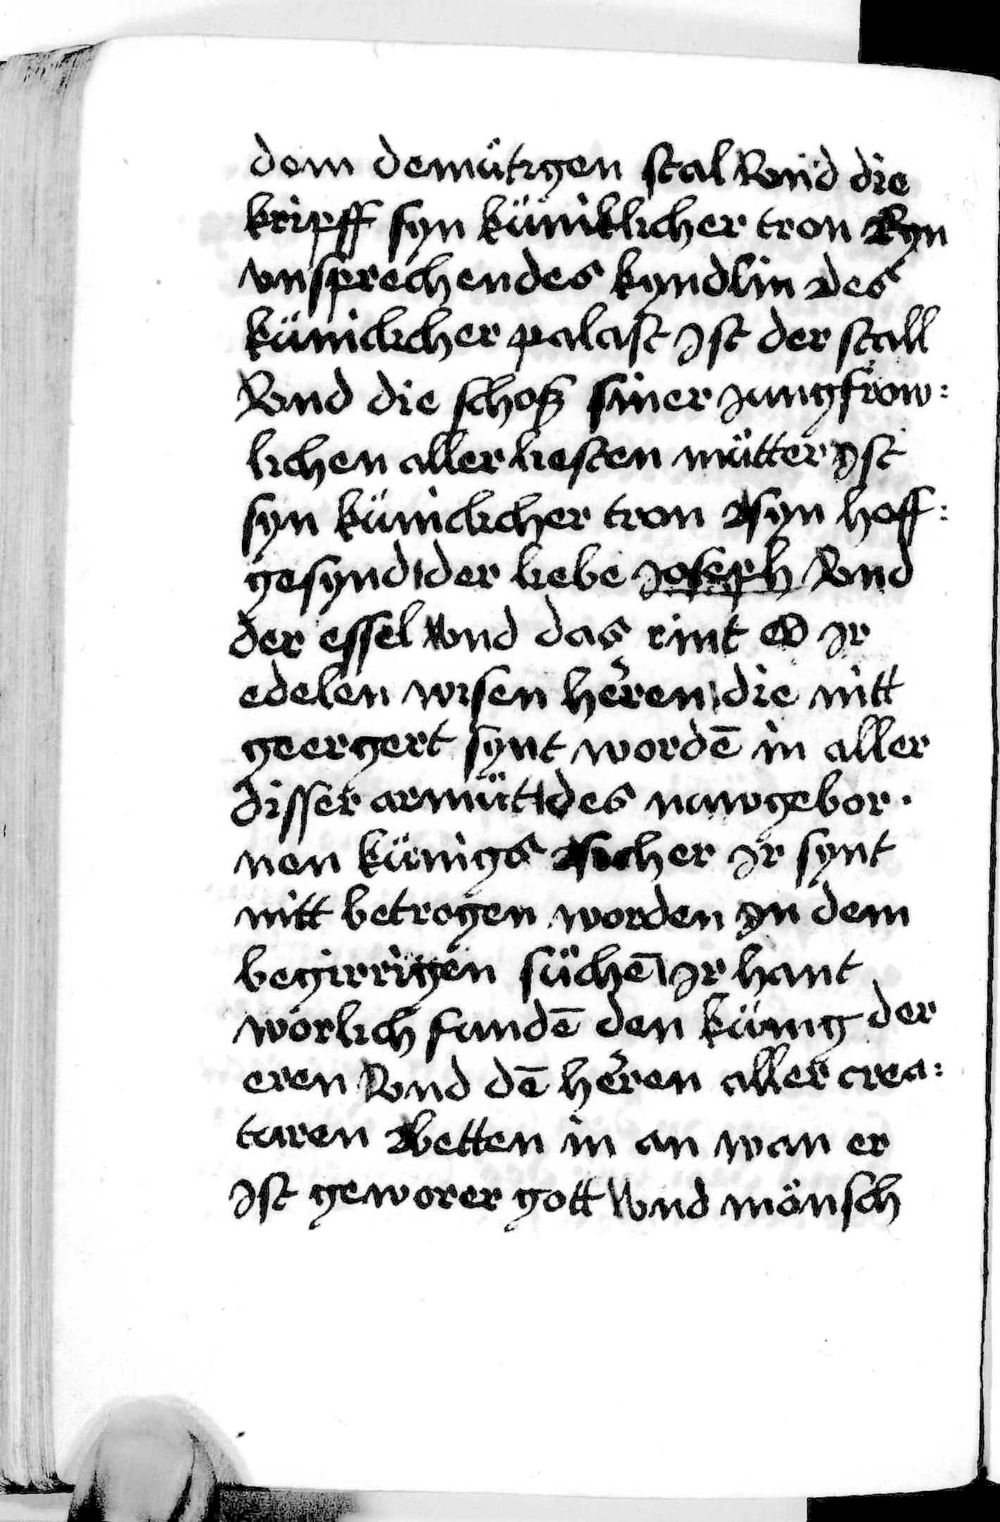 dem demütigen stal Vnd die
kripff syn küniklicher tron Eyn
vnsprechendes kyndlin des
künicklicher palast Jst der stall
Vnd die schoß siner jungfrow:
lichen aller liesten mütter Jst
syn künicklicher tron syn hoff:
gesynd der liebe Joseph Vnd
der essel Vnd das rint O Jr
edelen wisen heren die nitt
geergert synt wordē in aller
disser armütt des nuwgebor
nen künigs sicher Jr synt
nitt betrogen worden yn dem
begirrigen süchē Jr hant
worlich fundē den künig der
eren Vnd dē heren aller crea:
turen betten in an wan er
Jst geworer gott Vnd mönsch